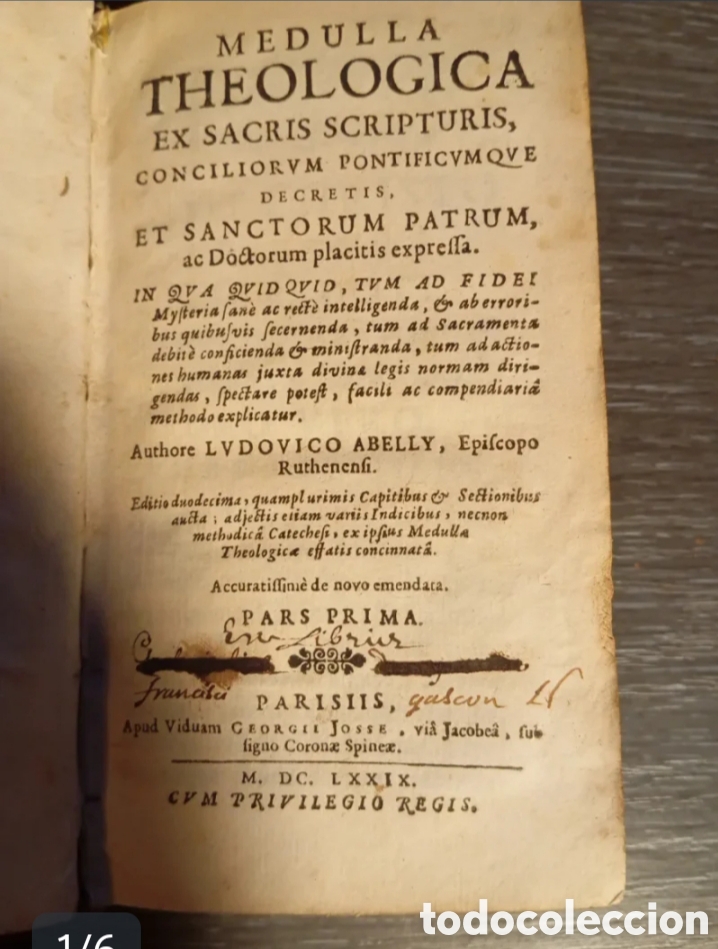 MEDULLA
THEOLOGICA
EX SACRIS SCRIPTURIS,
CONCILIORVM PONTIFICVMQVE
DECRETIS,
ET SANCTORUM PATRUM,
ac Doctorum placitis expreſſa.
IN QVA QVIDQVID, TVM AD FIDEI
Myſteria ſanè ac rectè intelligenda, & ab errori-
bus quibuſvis ſecernenda, tum ad Sacramenta
debitè conficienda & miniſtranda, tum ad actio-
nes humanas juxta divinæ legis normam diri-
gendas, ſpectare poteſt, facili ac compendiariâ
methodo explicatur.
Authore LVDOVICO ABELLY, Epiſcopo
Ruthenenſi.
Editio duodecima, quamplurimis Capitibus & Sectionibus
aucta; adjectis etiam variis Indicibus, necnon
methodicâ Catecheſi, ex ipſius Medullæ
Theologicæ effatis concinnatâ.
Accuratiſſimè de novo emendata.
PARS PRIMA.
Ex Libris
franciſci gascon
PARISIIS,
Apud Viduam GEORGII JOSSE, viâ Jacobeâ, ſub
ſigno Coronæ Spineæ.
M. DC. LXXIX.
CVM PRIVILEGIO REGIS.
1/6
todocoleccion